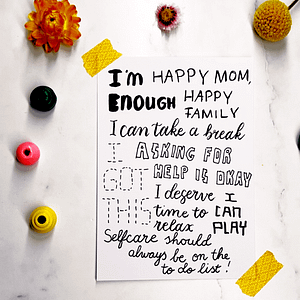 I'm HAPPY MOM,
ENOUGH HAPPY FAMILY
I can take a break
I ASKING FOR
GOT HELP IS OKAY
THIS I deserve time to relax I CAN PLAY
Selfcare should
always be on the
to do list!